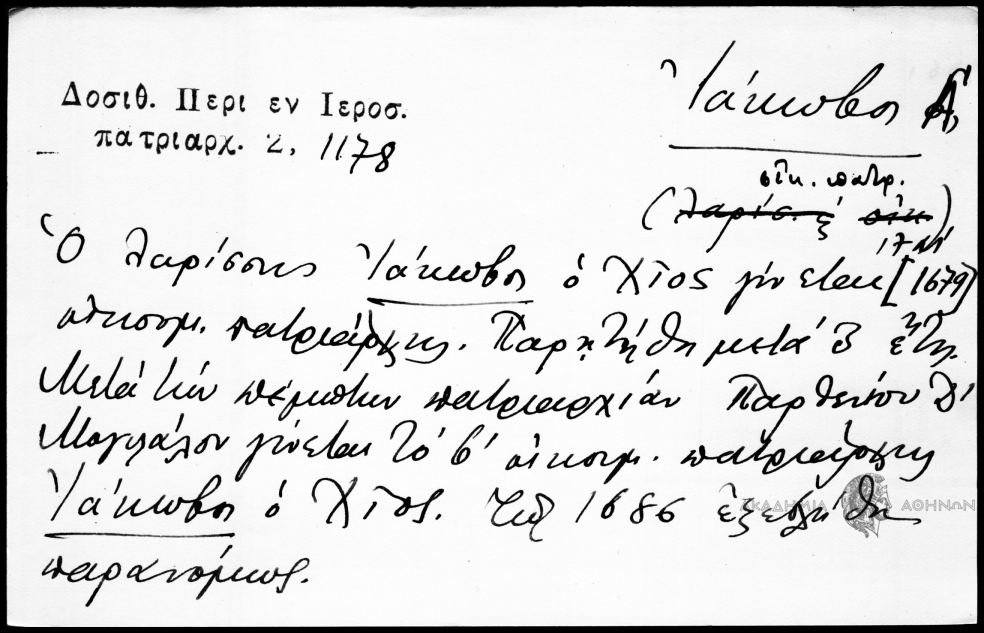 Δοσιθ. Περι εν Ιεροσ.
πατριαρχ. 2, 1178
Ἰάκωβος Α,
οἰκ. πατρ.
(λαρίσ. ξ οἰκ.)
17 αἰ
Ὁ Λαρίσσης Ἰάκωβος ὁ Χῖος γίνεται [1679]
οἰκουμ. πατριάρχης. Παρῃτήθη μετά 3 ἔτη.
Μετά τήν πέμπτην πατριαρχίαν Παρθενίου Δ΄
Μογιλάλου γίνεται τό β΄ οἰκουμ. πατριάρχης
Ἰάκωβος ὁ Χῖος. Τῷ 1686 ἐξεβλήθη
παρανόμως.
ΑΚΑΔΗΜΙΑ ΑΘΗΝΩΝ